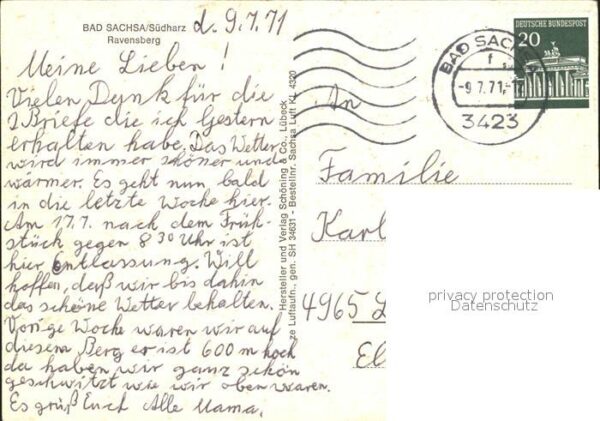 BAD SACHSA/Südharz
Ravensberg
d. 9.7.71
Meine Lieben!
Vielen Dank für die
2 Briefe die ich Gestern
erhalten habe. Das Wetter
wird immer schöner und
wärmer. Es geht nun bald
in die letzte Woche hier.
Am 17.7. nach dem Früh-
stück gegen 8 30 Uhr ist
hier Entlassung. Will
hoffen, daß wir bis dahin
das schöne Wetter behalten.
Vorige Woche waren wir auf
diesem Berg er ist 600 m hoch
da haben wir ganz schön
geschwitzt wie wir oben waren.
Es grüßt Euch Alle Mama.
Hersteller und Verlag Schöning & Co., Lübeck
ze Luftaufn., gen. SH 34631 - Bestellnr. Sachsa Luft KL 4320
DEUTSCHE BUNDESPOST
20
BAD SACHSA
f
-9.7.71.-
3423
An
Familie
Karl
4965 L
El
privacy protection
Datenschutz